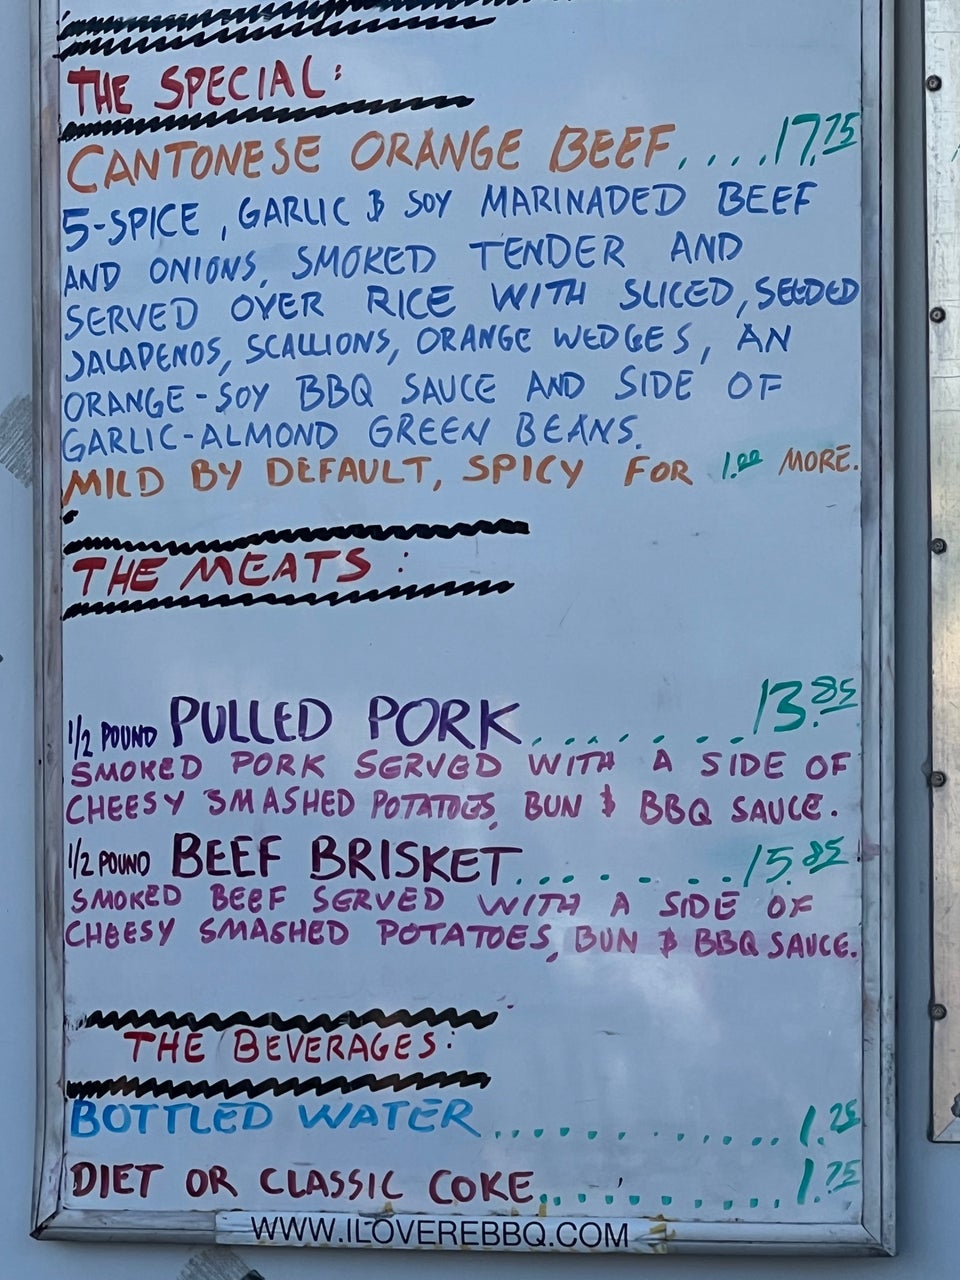 THE SPECIAL:
CANTONESE ORANGE BEEF....17.75
5-SPICE, GARLIC & SOY MARINADED BEEF
AND ONIONS, SMOKED TENDER AND
SERVED OVER RICE WITH SLICED, SEEDED
JALAPENOS, SCALLIONS, ORANGE WEDGES, AN
ORANGE-SOY BBQ SAUCE AND SIDE OF
GARLIC-ALMOND GREEN BEANS.
MILD BY DEFAULT, SPICY FOR 1.00 MORE.
THE MEATS:
1/2 POUND PULLED PORK........13.85
SMOKED PORK SERVED WITH A SIDE OF
CHEESY SMASHED POTATOES, BUN & BBQ SAUCE.
1/2 POUND BEEF BRISKET........15.85
SMOKED BEEF SERVED WITH A SIDE OF
CHEESY SMASHED POTATOES, BUN & BBQ SAUCE.
THE BEVERAGES:
BOTTLED WATER.............1.25
DIET OR CLASSIC COKE...........1.75
WWW.ILOVEREBBQ.COM